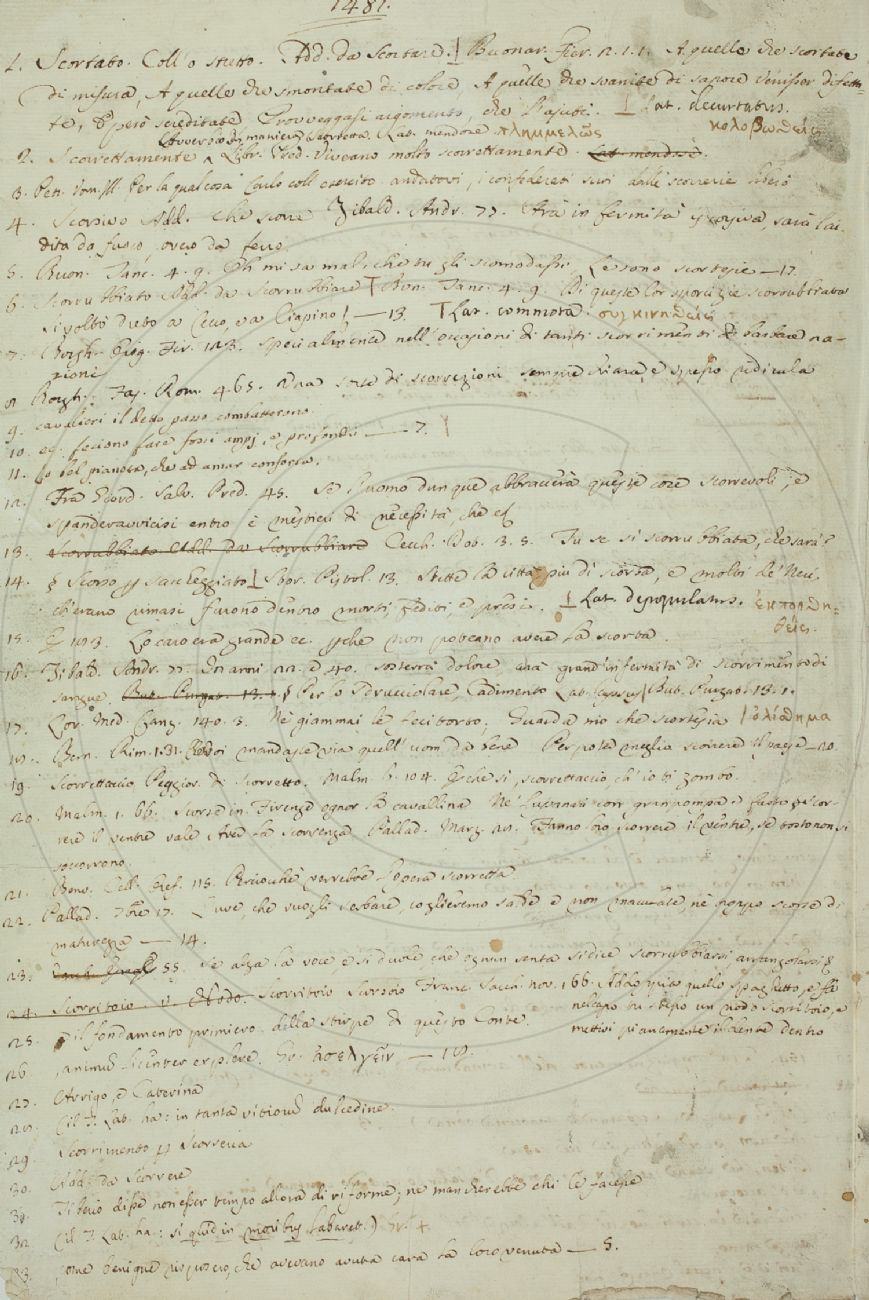 1481.
1. Scortato. Coll' o stretto. Add. da Scortare. Buonar. Fier. 2. 1. 1. A quelle che scortate
di misura, A quelle che smontate di colore, A quelle che svanite di sapore Venisser difetta-
te, e però screditate Provveggasi argomento, che l'ajuti. Lat. decurtatus.
κολοβωθείς
Avverb. Con maniera scorretta. Lat. mendose πλημμελῶς
2. Scorrettamente Libr. Pred. Viveano molto scorrettamente. Lat. mendose.
3. Petr. Uom. ill. Per la qual cosa Carlo coll' esercito andatovi, i confederati suoi dalle scorrerie liberò
4. Scorsivo Add. Che scorre Zibald. Andr. 77. Avrà infermità scorsiva, sarà lai-
dita da fuoco, ovvero da ferro.
5. Buon. Tanc. 4. 9. Oh mi sa mal, che tu gli scomodassi, Le sono scortesie — 17.
6. Scorrubbiato Add. da Scorrubbiare Buon. Tanc. 4. 9. Di queste lor sporcizie scorrubbiata
si voltò dreto a Cecco, va Ciapino! — 13. Lat. commota. συγκινηθείς
7. Borgh. Orig. Fir. 123. Specialmente nell' occasioni di tanti scorrimenti di barbare na-
zioni
8. Borgh. Fas. Rom. 465. Una sorta di scorrezioni sempre chiara, e spesso ridicula
9. cavalieri il detto passo combatterono.
10. ec. feciono fare fossi ampj, e profondi — 7.
11. lo bel pianeta, che ad amar conforta.
12. Fra Giord. Salv. Pred. 45. Se l'uomo dunque abbraccerà queste cose scorrevoli, e
spanderavvicisi entro è mestieri di necessità, che ec.
13. Scorrubbiato Add. da Scorrubbiare Cecch. Dot. 3. 5. Tu se sì scorrubbiata, che sarà?
14. Scorso per saccheggiato Stor. Pistol. 13. Stette la città più dì scorsa, e molti de' Neri,
ch'erano rimasi furono dentro morti, fediti, e presi. Lat. depopulatus. ἐκπορθη-
θείς.
15. E 103. Lo caro era grande ec. perchè non poteano avere la scorta.
16. Zibald. Andr. 77. In anni 22. e 40. sosterrà dolore avrà grand' infermità di scorrimento di
sangue. But. Purgat. 13. 1. Per lo sdrucciolare, Cadimento Lat. lapsus But. Purgat. 13. 1.
17. Lor. Med. Canz. 140. 3. Nè giammai le feci torto; Guarda mo che scortesia ὀλίσθημα
18. Bern. Rim. 1. 31. Poi mandasse via quell' uom da bene Per poter meglio scorrere il paese — 20.
19. Scorrettaccio Peggior. di Scorretto. Malm. 6. 104. Perchè sì, scorrettaccio, ch'io ti zombo.
20. Malm. 1. 66. Scorse in Firenze ognor la cavallina Nè lupanari con gran pompa, e fasto Scor-
rere il ventre vale Aver la scorrenza Pallad. Marz. 21. Fanno loro scorrere il ventre, se tosto non si
soccorrono.
21. Benv. Cell. Oref. 115. Perciocchè verrebbe l'opera scorretta.
22. Pallad. 7bre 17. L'uve, che vuogli serbare, coglieremo salde e non maculate, nè troppo scorse di
maturezza — 14.
23. 55. Se alza la voce e si duole che ognun senta si dice scorrubbiarsi, arrangolarsi
24. Scorritoio. v. Nodo. Scorritoio Scorsoio Franc. Sacch. nov. 166. Addoppia quello spaghetto, e fa
nel capo su stesso un nodo scorritoio, e
mettivi pianamente il dente dentro
25. il fondamento primiero della stirpe di questo Conte.
26. animum licenter explere. Gr. ἀσελγεῖν — 18.
27. Arrigo, e Caterina
28. (il T. Lat. ha: in tanta vitiorum dulcedine.
29. Scorrimento per Scorreria
30. Add. da Scorrere
31. Tiberio disse non esser tempo allora di riforme; nè mancherebbe chi le facesse
32. (il T. Lat. ha: si quid in moribus labaret.)
33. come benigne risposero, che avevano avuta cara la loro venuta — 5.